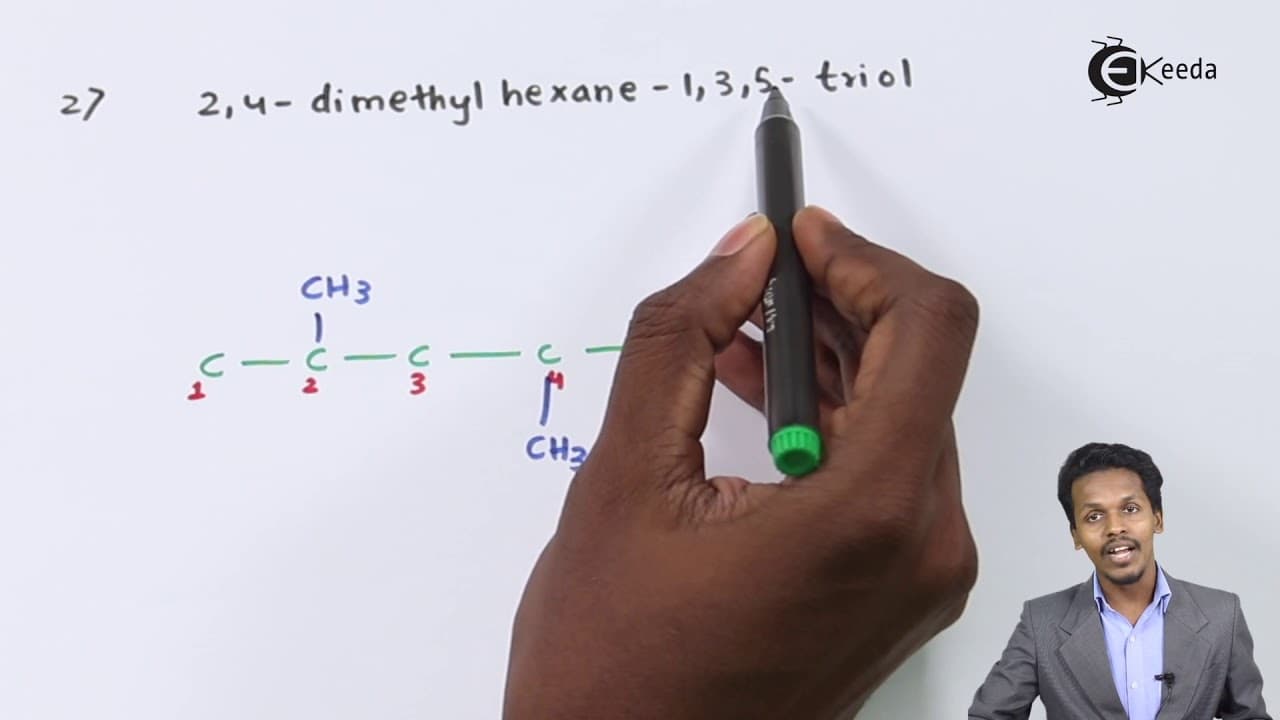 27 2,4- dimethyl hexane - 1,3,5- triol
EKeeda
CH3
C - C - C - C -
1 2 3 4
CH3